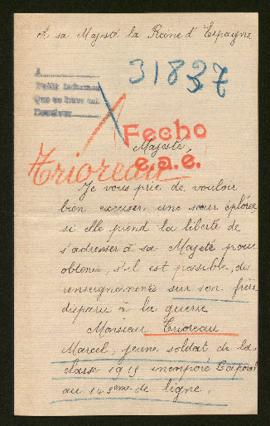 A sa Majesté la Reine d'Espagne
31837
A
Pedir informes
Que se trave
Fecho
e.a.é.
Majesté
Trioreau
Je vous prie de vouloir
bien excuser une sœur éplorée
si elle prend la liberté de
s'adresser à sa Majeté pour
obtenir, s'il est possible, des
renseignements sur son frère
disparu à la guerre
Monsieur Trioreau
Marcel, jeune soldat de la
classe 1915 incorporé Caporal
au de ligne.